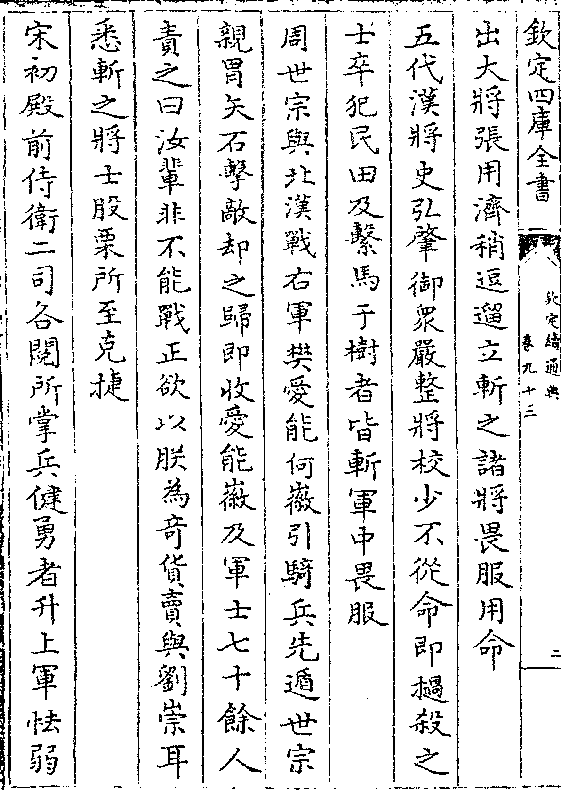 欽定四庫全書
欽定續通典
卷九十三
二
出大將張用濟稍逗遛立斬之諸將畏服用命
五代漢將史弘肇御衆嚴整將校少不從命即撾殺之
士卒犯民田及繫馬于樹者皆斬軍中畏服
周世宗與北漢戰右軍樊愛能何徽引騎兵先遁世宗
親冒矢石擊敵却之歸即收愛能徽及軍士七十餘人
責之曰汝輩非不能戰正欲以朕為奇貨賣與劉崇耳
悉斬之將士股栗所至克捷
宋初殿前侍衛二司各閱所掌兵健勇者升上軍怯弱